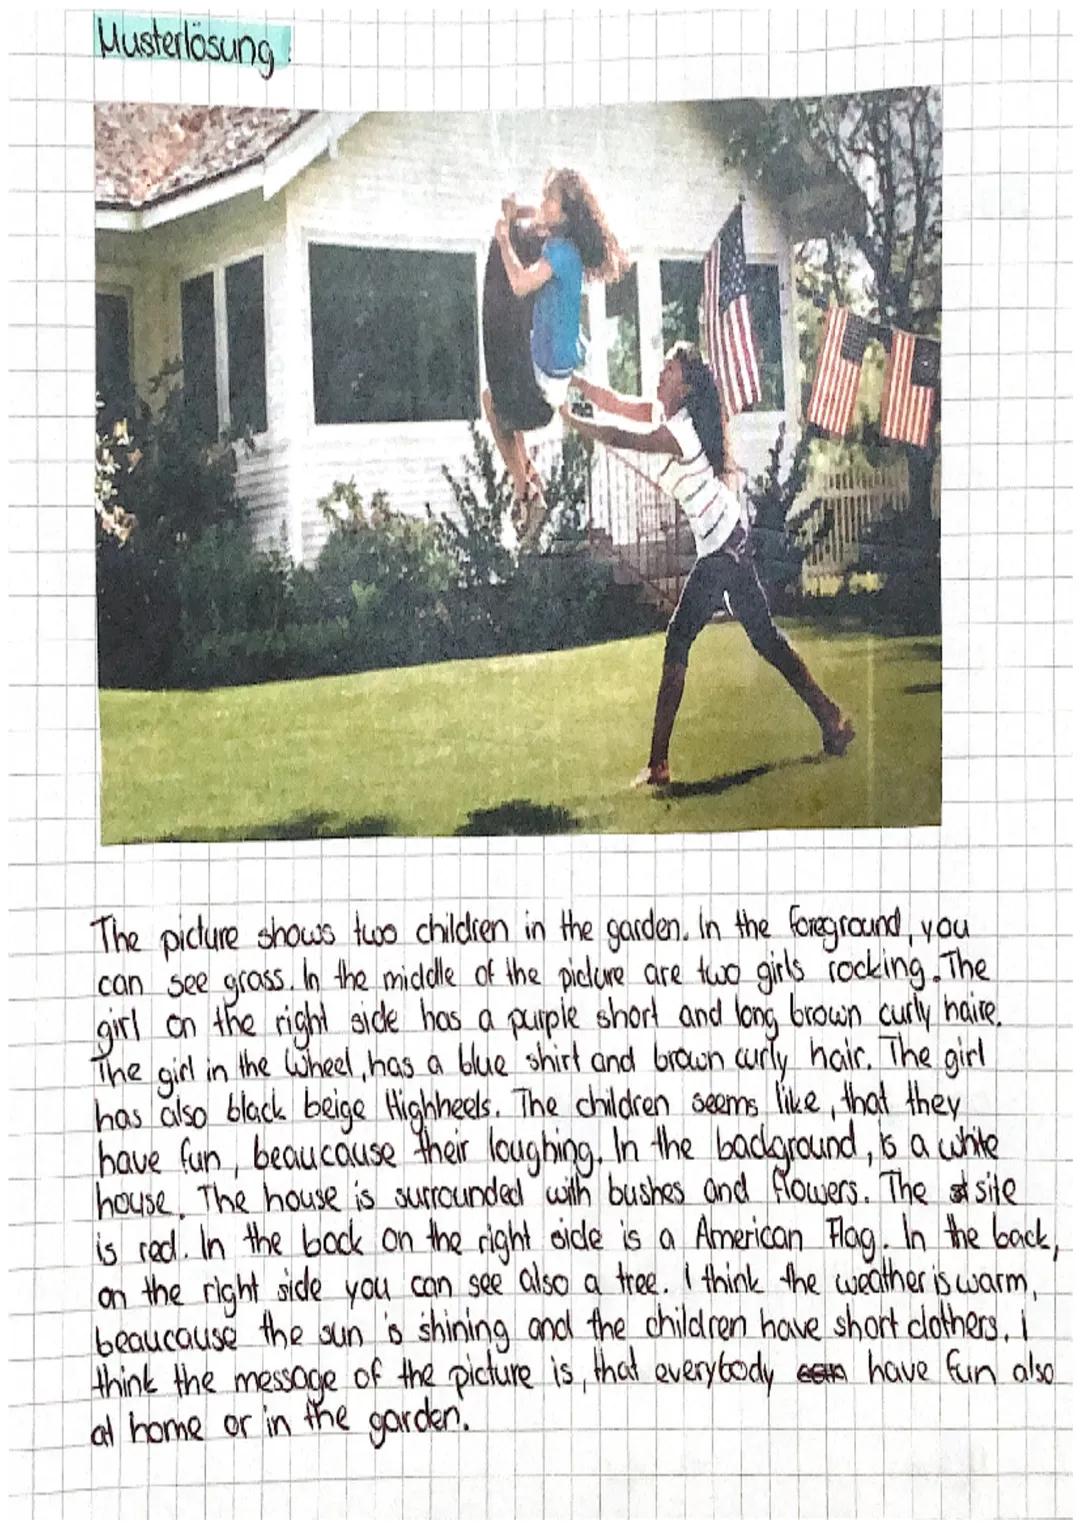 Musterlösung:
The picture shows two children in the garden. In the foreground, you
can see grass. In the middle of the picture are two girls rocking. The
girl on the right side has a purple short and long brown curly haire.
The girl in the Wheel, has a blue shirt and brown curly hair. The girl
has also black beige Highheels. The children seems like, that they
have fun, beaucause their loughing. In the background, is a white
house. The house is surrounded with bushes and flowers. The site
is red. In the back on the right side is a American Flag. In the back,
on the right side you can see also a tree. I think the weather is warm,
beaucause the sun is shining and the children have short clothers. I
think the message of the picture is, that everybody have fun also
at home or in the garden.